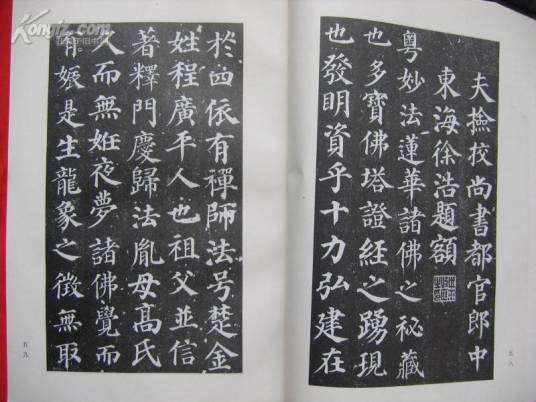 夫撿挍尚書都官郎中
東海徐浩題額
粵妙法蓮華諸佛之祕藏
也多寶佛塔證經之踴現
也發明資乎十力弘建在
五八
於四依有禪師法号楚金
姓程廣平人也祖父並信
著釋門慶歸法胤母高氏
久而無姙夜夢諸佛覺而
有娠是生龍象之徵無取
五九
Kongfz.com